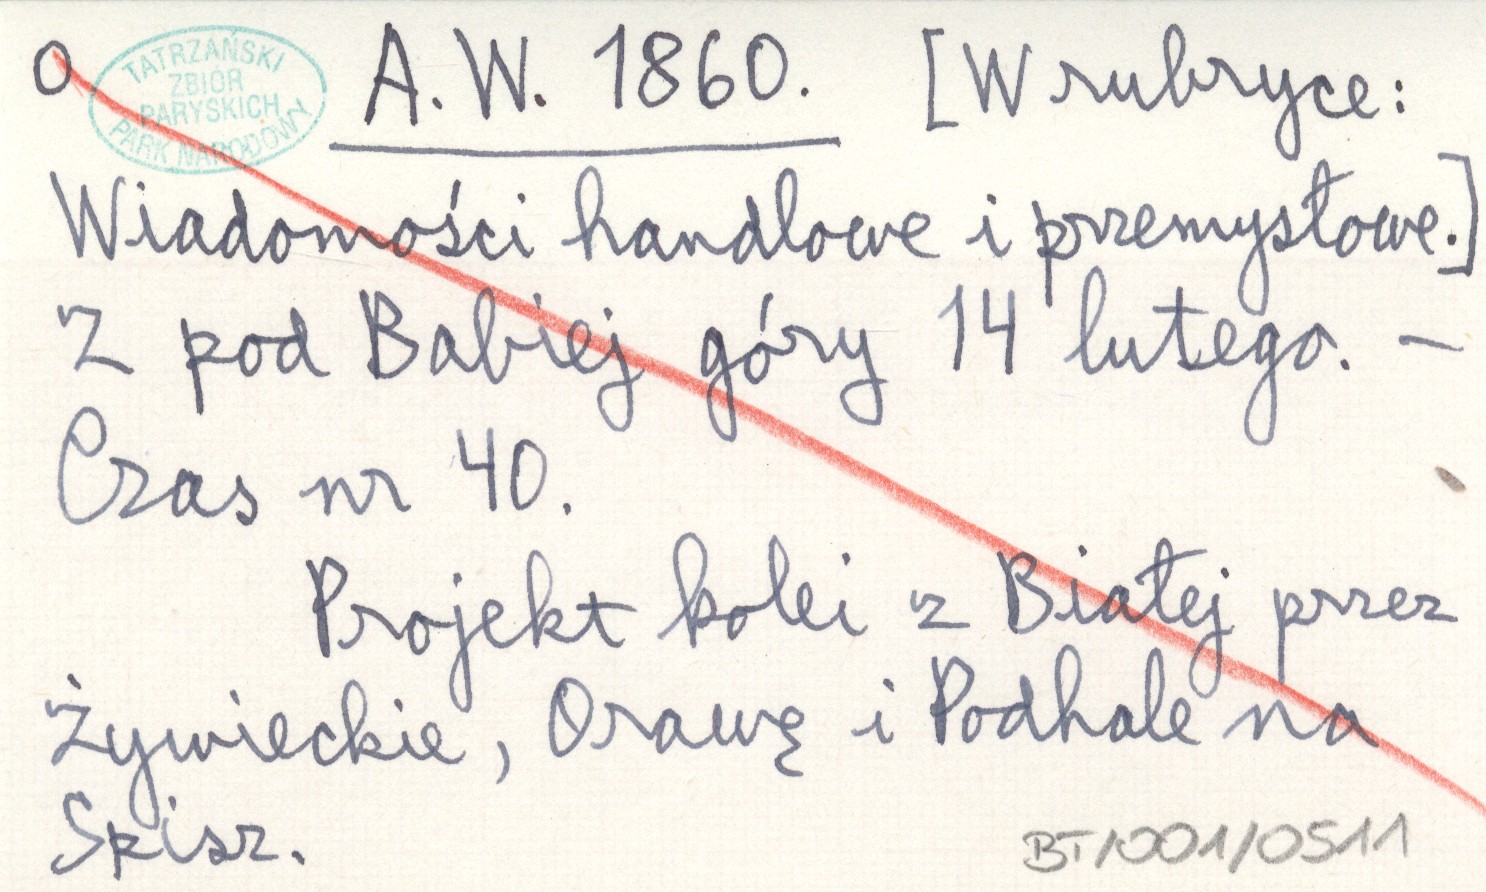 O A.W. 1860. [W rubryce:
TATRZAŃSKI
ZBIÓR
PARYSKICH
PARK NARODOWY
Wiadomości handlowe i przemysłowe.]
Z pod Babiej góry 14 lutego. –
Czas nr 40.
Projekt kolei z Białej przez
żywieckie, Orawę i Podhale na
Spisz.
BT/001/0511